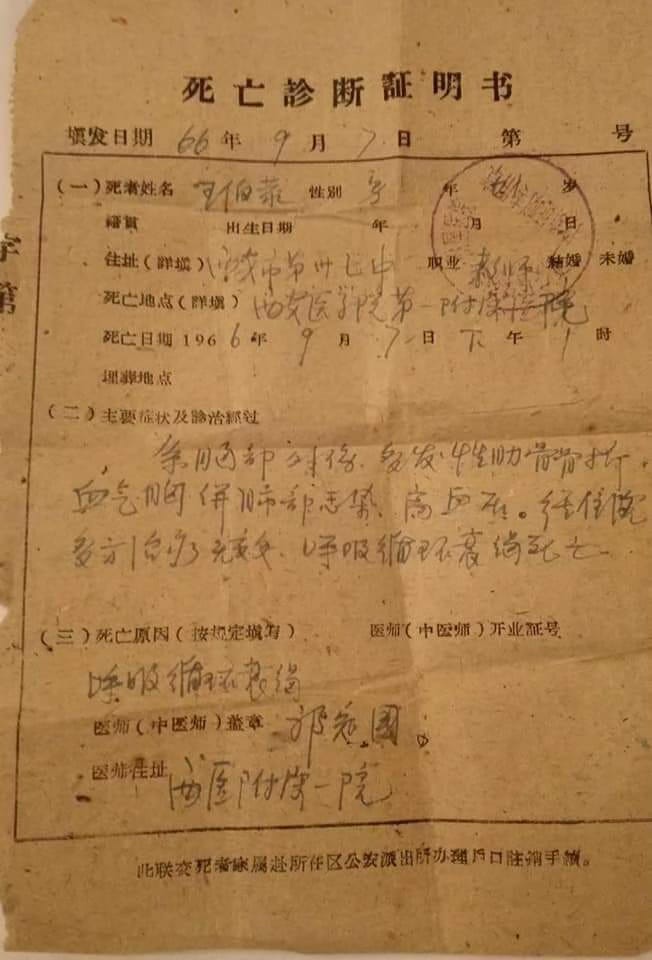 死亡診断証明书
填发日期 66年 9 月 7 日 第 号
(一)死者姓名 王伯恭 性别 年 岁
籍貫 出生日期 年 月 日
住址(詳填)西安市第卅七中 职业 教师 結婚 未婚
死亡地点(詳填)西安医学院第一附属医院
死亡日期1966年 9 月 7 日 下 午 1 时
埋葬地点
(二)主要症状及診治經过
系胸部外伤、多发性肋骨骨折、
血气胸併肺部感染、高血压。经住院
多方治疗无效、呼吸循环衰竭死亡。
(三)死亡原因(按规定填写) 医师(中医师)开业証号
呼吸循环衰竭
医师(中医师)盖章
医师住址 西医附属一院
此联交死者家属赴所在区公安派出所办理戶口註銷手續。
字
第